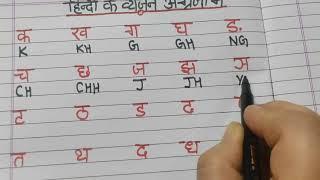 हिन्दी के व्यंजन अंग्रेजी में
क ख ग घ ङ
K KH G GH NG
च छ ज झ ञ
CH CHH J JH Y
ट ठ ड ढ
त थ द ध